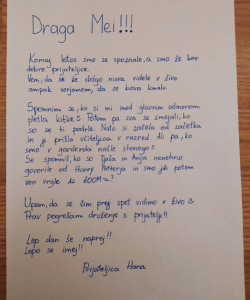 Draga Mei!!!
Komaj letos smo se spoznale, a smo že kar
dobre prijateljice.
Vem, da se že dolgo nisva videle v živo
ampak verjamem, da se bova kmalu.
Spomnim se, ko si mi med glavnim odmorom
pletla kitke. Potem pa sva se smejali, ko
so se ti podrle. Nato si začela od začetka
in je prišla učiteljica v razred. Ali pa, ko
smo v garderobi našle stonego!!
Se spomniš, ko so Tjaša in Anja nenehno
govorile od Harry Potterja in smo jih potem
ven vrgle iz ZOOM-a?
Upam, da se čim prej spet vidimo v živo
Prav pogrešam druženje s prijatelji!!
Lep dan še naprej!!
Lepo se imej!!
Prijateljica Hana